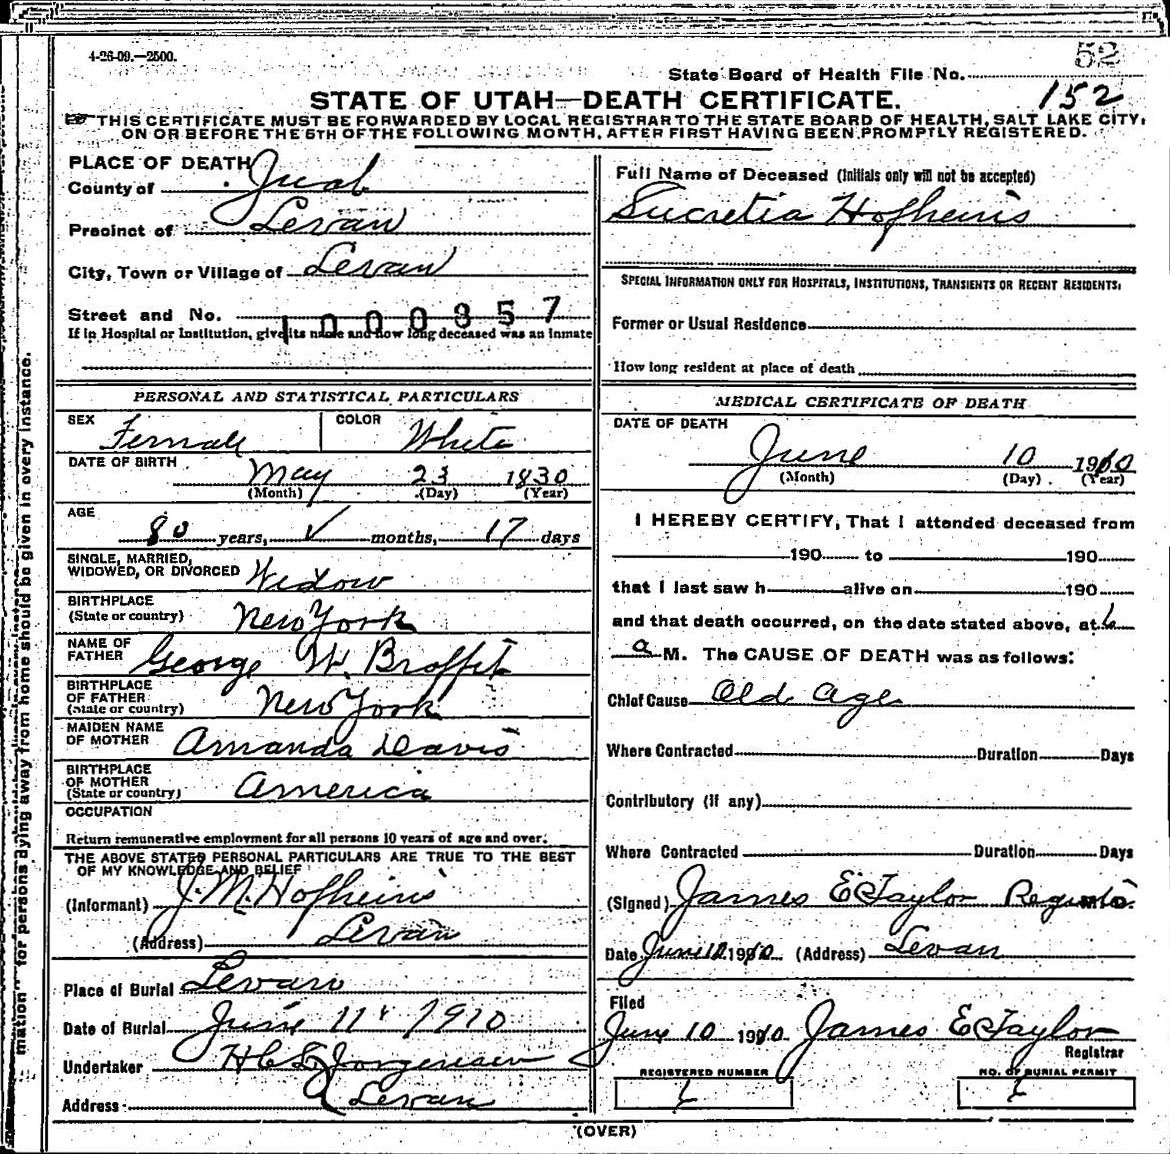 4-26-09.—2500.
52
State Board of Health File No.
152
STATE OF UTAH—DEATH CERTIFICATE.
THIS CERTIFICATE MUST BE FORWARDED BY LOCAL REGISTRAR TO THE STATE BOARD OF HEALTH, SALT LAKE CITY,
ON OR BEFORE THE 5TH OF THE FOLLOWING MONTH, AFTER FIRST HAVING BEEN PROMPTLY REGISTERED.
PLACE OF DEATH
County of Juab
Precinct of Levan
City, Town or Village of Levan
Street and No.
1000357
If in Hospital or Institution, give its name and how long deceased was an inmate
Full Name of Deceased (Initials only will not be accepted)
Lucretia Hofheins
SPECIAL INFORMATION ONLY FOR HOSPITALS, INSTITUTIONS, TRANSIENTS OR RECENT RESIDENTS.
Former or Usual Residence
How long resident at place of death
PERSONAL AND STATISTICAL PARTICULARS
SEX Female COLOR White
DATE OF BIRTH May 23 1830
(Month) (Day) (Year)
AGE
80 years, ✓ months, 17 days
SINGLE, MARRIED,
WIDOWED, OR DIVORCED Widow
BIRTHPLACE
(State or country) New York
NAME OF
FATHER George W. Broffit
BIRTHPLACE
OF FATHER
(State or country) New York
MAIDEN NAME
OF MOTHER Amanda Davis
BIRTHPLACE
OF MOTHER
(State or country) America
OCCUPATION
Return remunerative employment for all persons 10 years of age and over.
THE ABOVE STATED PERSONAL PARTICULARS ARE TRUE TO THE BEST
OF MY KNOWLEDGE AND BELIEF
(Informant) J. M. Hofheins
(Address) Levan
Place of Burial Levan
Date of Burial June 11 1910
Undertaker Jorgensen
Address Levan
MEDICAL CERTIFICATE OF DEATH
DATE OF DEATH
June 10 1910
(Month) (Day) (Year)
I HEREBY CERTIFY, That I attended deceased from
190 to 190
that I last saw h alive on 190
and that death occurred, on the date stated above, at 6
a M. The CAUSE OF DEATH was as follows:
Chief Cause Old age
Where Contracted Duration Days
Contributory (if any)
Where Contracted Duration Days
(Signed) James E Taylor
Date June 10 1910 (Address) Levan
Filed
June 10 1910 James E Taylor
Registrar
REGISTERED NUMBER NO. OF BURIAL PERMIT
6 6
(OVER)
mation" for persons dying away from home should be given in every instance.